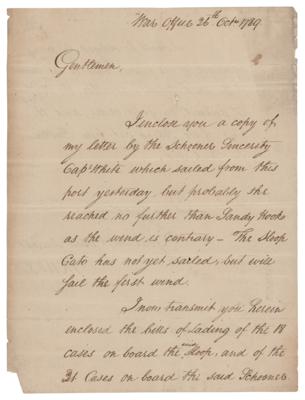 War Office 26th Octr 1789
Gentlemen,
I inclose you a copy of
my letter by the Schooner Sincerity
Capt White which sailed from this
port yesterday, but probably she
reached no further than Sandy Hook
as the wind is contrary – The Sloop
Cato has not yet sailed, but will
sail the first wind.
I now transmit you herein
enclosed the bills of lading of the 18
cases on board the said Sloop, and of the
21 Cases on board the said Schooner